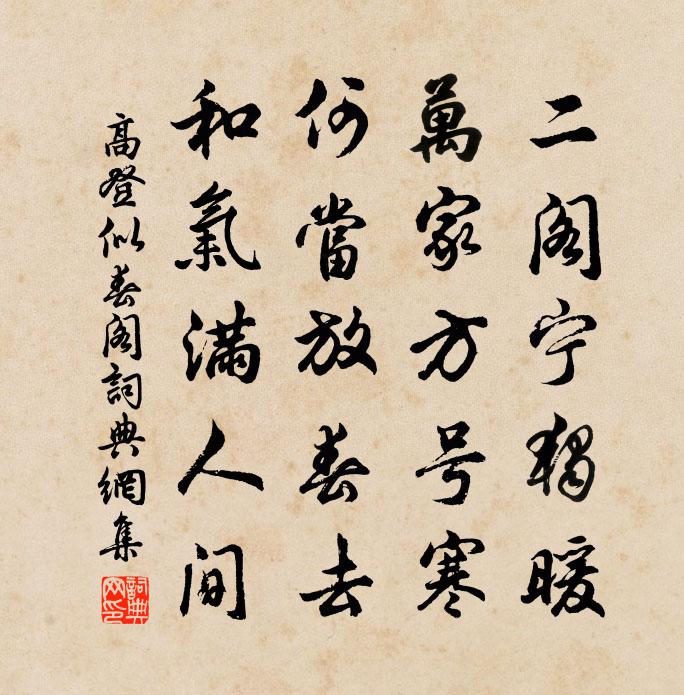 二阁宁独暖
萬家方号寒
何當放春去
和氣滿人间
高登似春阁詞典網集
詞典网印